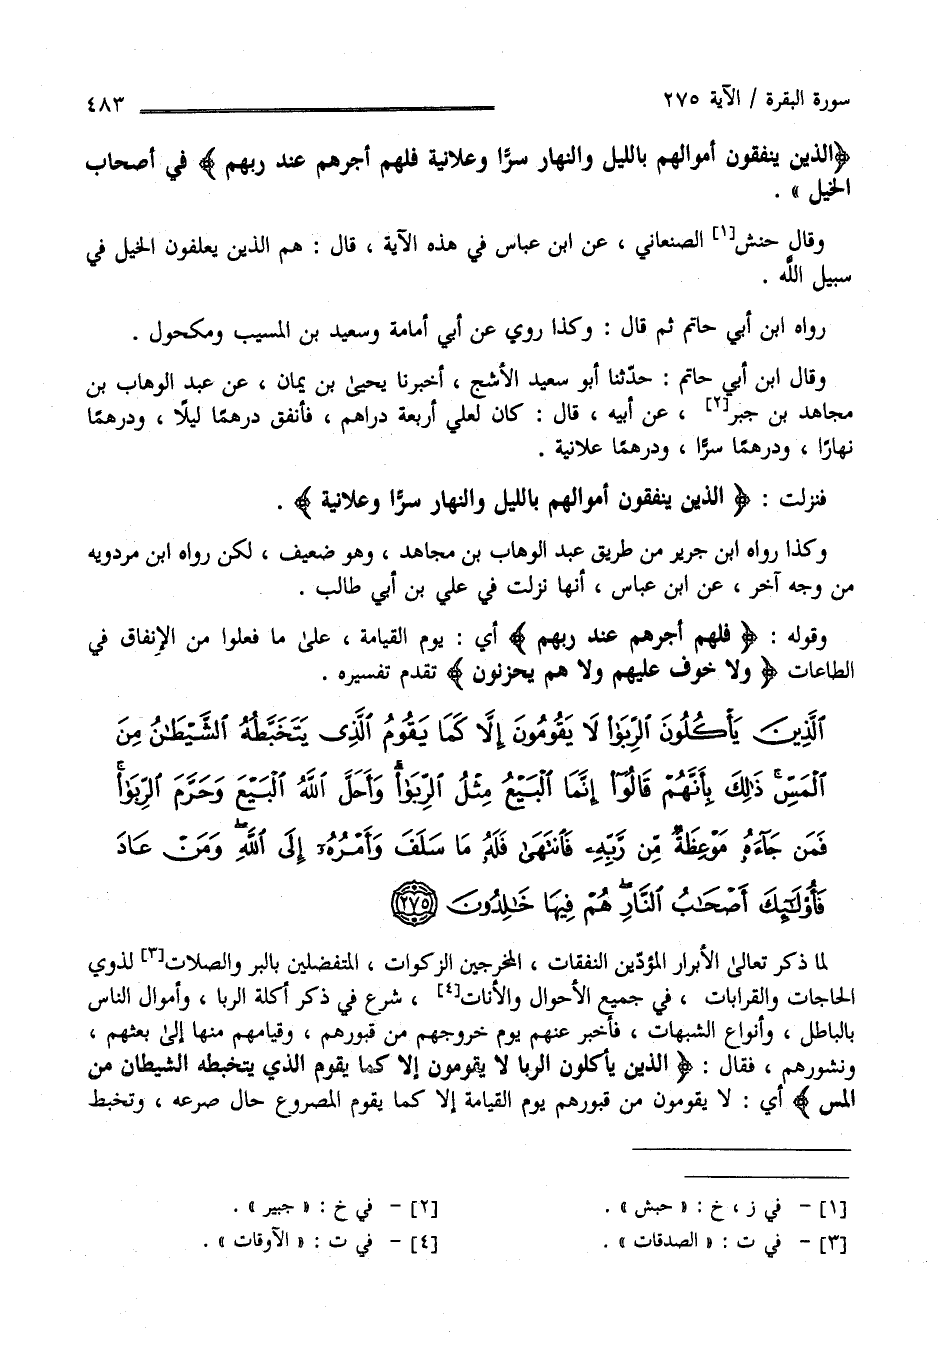 سورة البقرة / الآية ٢٧٥ ٤٨٣
﴿الذين ينفقون أموالهم بالليل والنهار سرًّا وعلانية فلهم أجرهم عند ربهم ﴾ في أصحاب
الخيل » .
وقال حنش[١] الصنعاني ، عن ابن عباس في هذه الآية ، قال : هم الذين يعلفون الخيل في
سبيل اللَّه .
رواه ابن أبي حاتم ثم قال : وكذا روي عن أبي أمامة وسعيد بن المسيب ومكحول .
وقال ابن أبي حاتم : حدّثنا أبو سعيد الأشج ، أخبرنا يحيىٰ بن يمان ، عن عبد الوهاب بن
مجاهد بن جبر[٢] ، عن أبيه ، قال : كان لعلي أربعة دراهم ، فأنفق درهمًا ليلًا ، ودرهمًا
نهارًا ، ودرهمًا سرًّا ، ودرهمًا علانية .
فنزلت : ﴿ الذين ينفقون أموالهم بالليل والنهار سرًّا وعلانية ﴾ .
وكذا رواه ابن جرير من طريق عبد الوهاب بن مجاهد ، وهو ضعيف ، لكن رواه ابن مردويه
من وجه آخر ، عن ابن عباس ، أنها نزلت في علي بن أبي طالب .
وقوله : ﴿ فلهم أجرهم عند ربهم ﴾ أي : يوم القيامة ، علىٰ ما فعلوا من الإنفاق في
الطاعات ﴿ ولا خوف عليهم ولا هم يحزنون ﴾ تقدم تفسيره .
ٱلَّذِينَ يَأۡكُلُونَ ٱلرِّبَوٰاْ لَا يَقُومُونَ إِلَّا كَمَا يَقُومُ ٱلَّذِى يَتَخَبَّطُهُ ٱلشَّيۡطَٰنُ مِنَ
ٱلۡمَسِّۚ ذَٰلِكَ بِأَنَّهُمۡ قَالُوٓاْ إِنَّمَا ٱلۡبَيۡعُ مِثۡلُ ٱلرِّبَوٰاْۗ وَأَحَلَّ ٱللَّهُ ٱلۡبَيۡعَ وَحَرَّمَ ٱلرِّبَوٰاْۚ
فَمَن جَآءَهُۥ مَوۡعِظَةٌ مِّن رَّبِّهِۦ فَٱنتَهَىٰ فَلَهُۥ مَا سَلَفَ وَأَمۡرُهُۥٓ إِلَى ٱللَّهِۖ وَمَنۡ عَادَ
فَأُوْلَٰٓئِكَ أَصۡحَٰبُ ٱلنَّارِۖ هُمۡ فِيهَا خَٰلِدُونَ ٢٧٥
لما ذكر تعالىٰ الأبرار المؤدّين النفقات ، المخرجين الزكوات ، المتفضلين بالبر والصلات[٣] لذوي
الحاجات والقرابات ، في جميع الأحوال والأنات[٤] ، شرع في ذكر أكلة الربا ، وأموال الناس
بالباطل ، وأنواع الشبهات ، فأخبر عنهم يوم خروجهم من قبورهم ، وقيامهم منها إلىٰ بعثهم ،
ونشورهم ، فقال : ﴿ الذين يأكلون الربا لا يقومون إلا كما يقوم الذي يتخبطه الشيطان من
المس ﴾ أي : لا يقومون من قبورهم يوم القيامة إلا كما يقوم المصروع حال صرعه ، وتخبط
[١] - في ز ، خ : « حبش » . [٢] - في خ : « جبير » .
[٣] - في ت : « الصدقات » . [٤] - في ت : « الأوقات » .